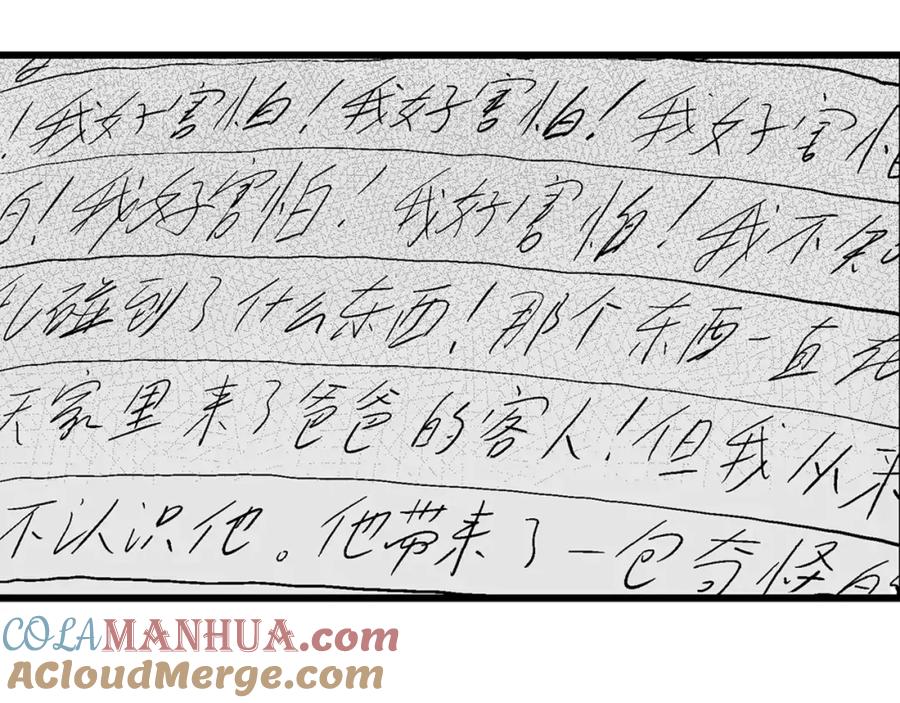 ！我好害怕！我好害怕！我好害怕
怕！我好害怕！我好害怕！我不知
碰到了什么东西！那个东西一直在
天家里来了爸爸的客人！但我从来
不认识他。他带来了一包奇怪的
COLAMANHUA.com
ACloudMerge.com